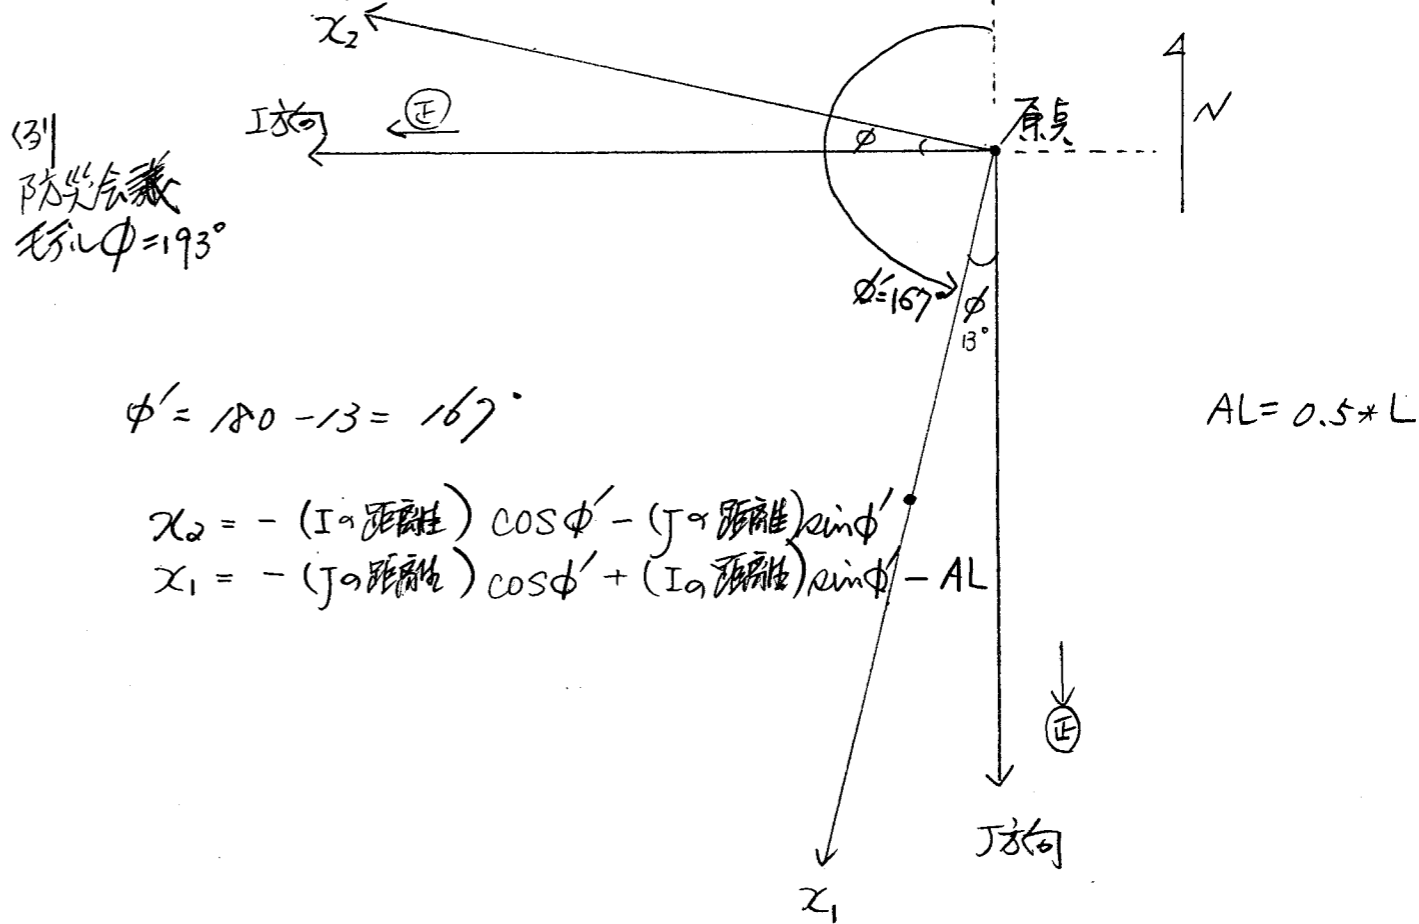 x₂
I方向
正
原点
N
例
防災会議
モデルφ=193°
φ
φ'=167°
φ
13°
φ' = 180 - 13 = 167°
AL = 0.5 * L
x₂ = - (Iの距離) cosφ' - (Jの距離) sinφ'
x₁ = - (Jの距離) cosφ' + (Iの距離) sinφ' - AL
正
J方向
x₁